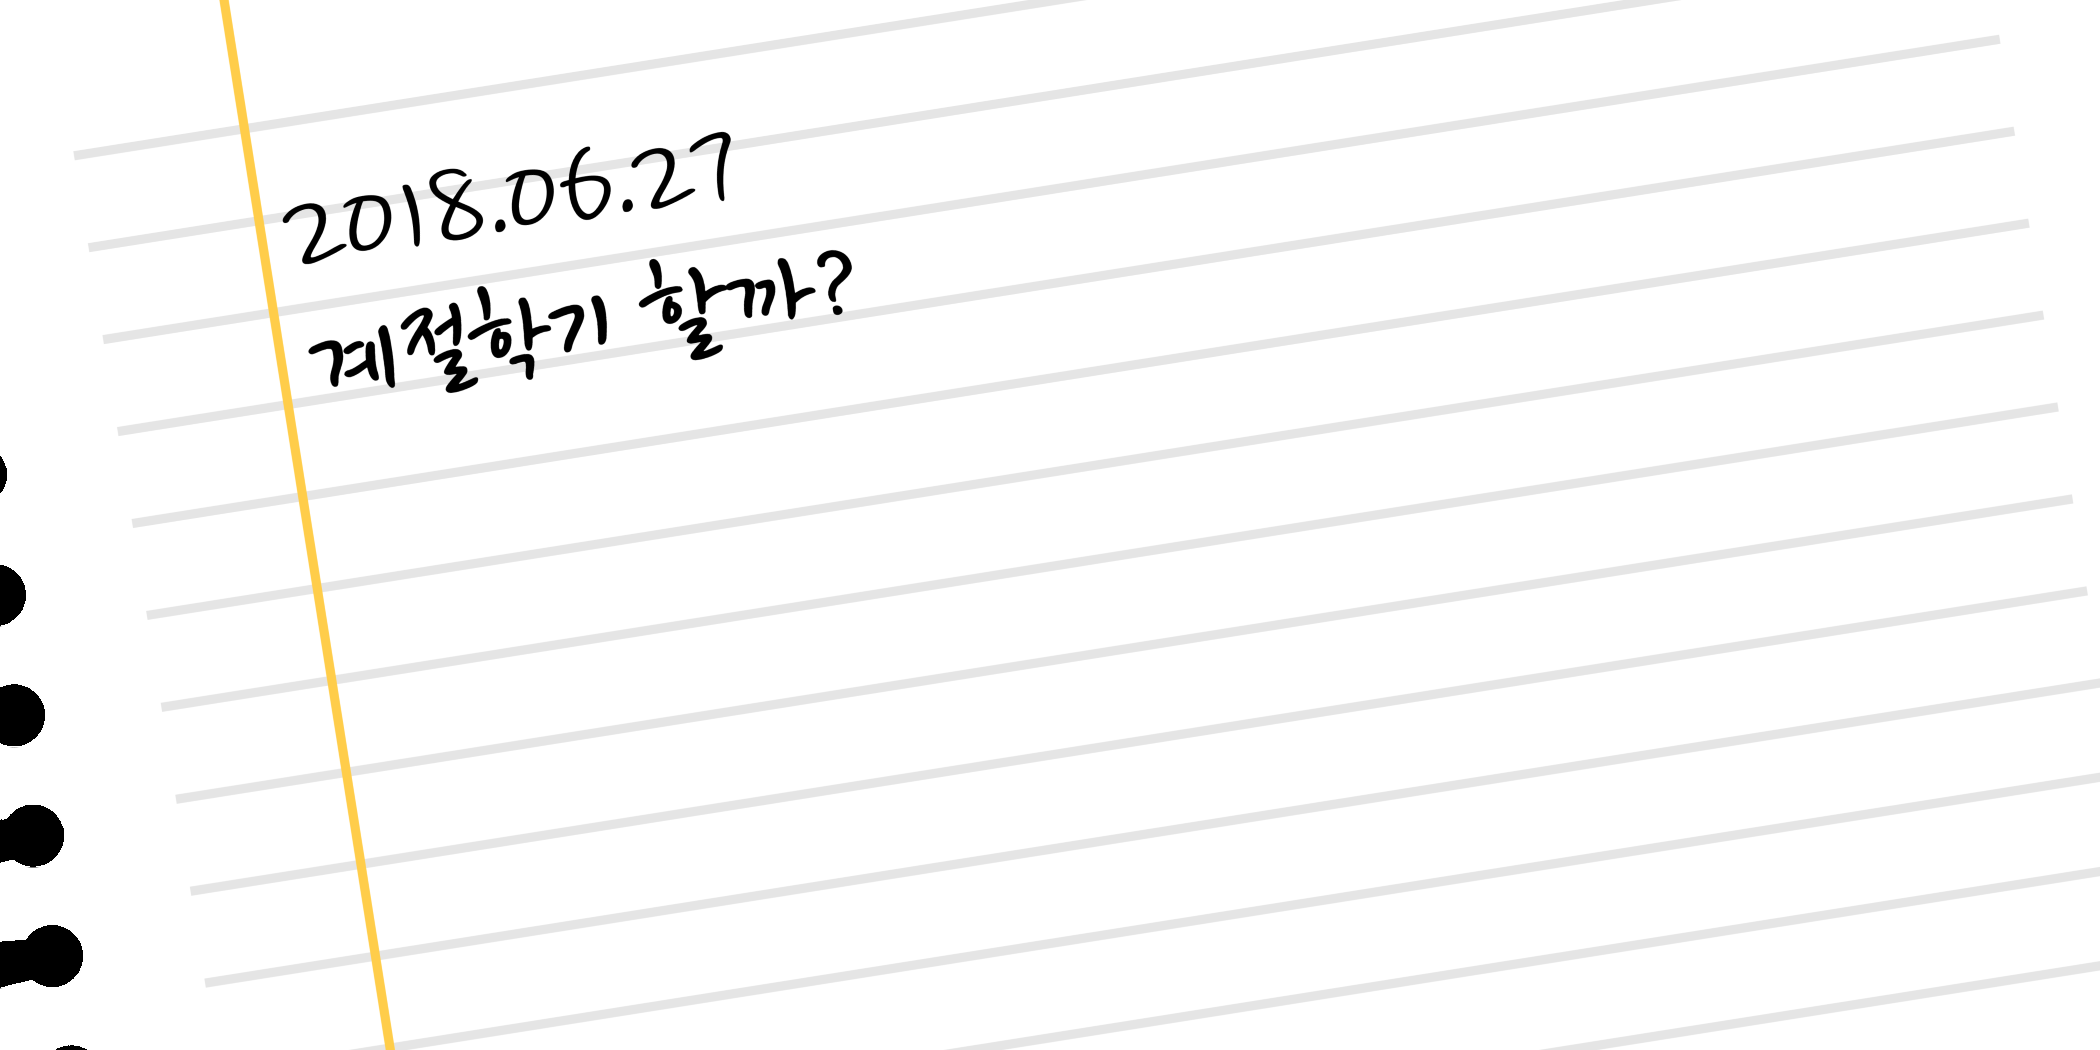 2018.06.27
계절학기 할까?